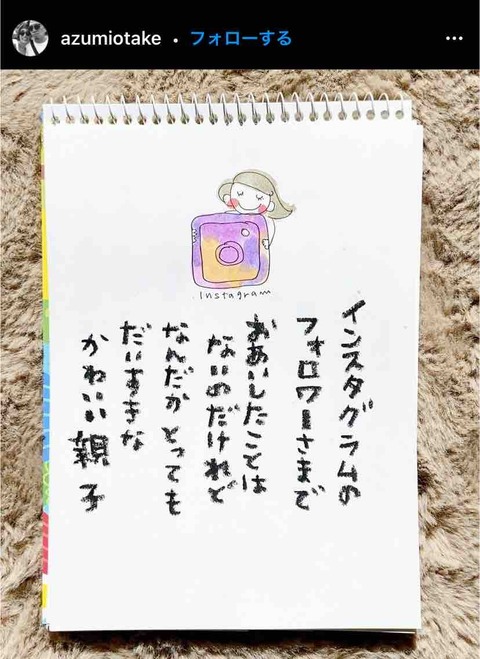 azumiotake • フォローする
Instagram
インスタグラムの
フォロワーさまで
おあいしたことは
ないのだけれど
なんだか とっても
だいすきな
かわいい 親子